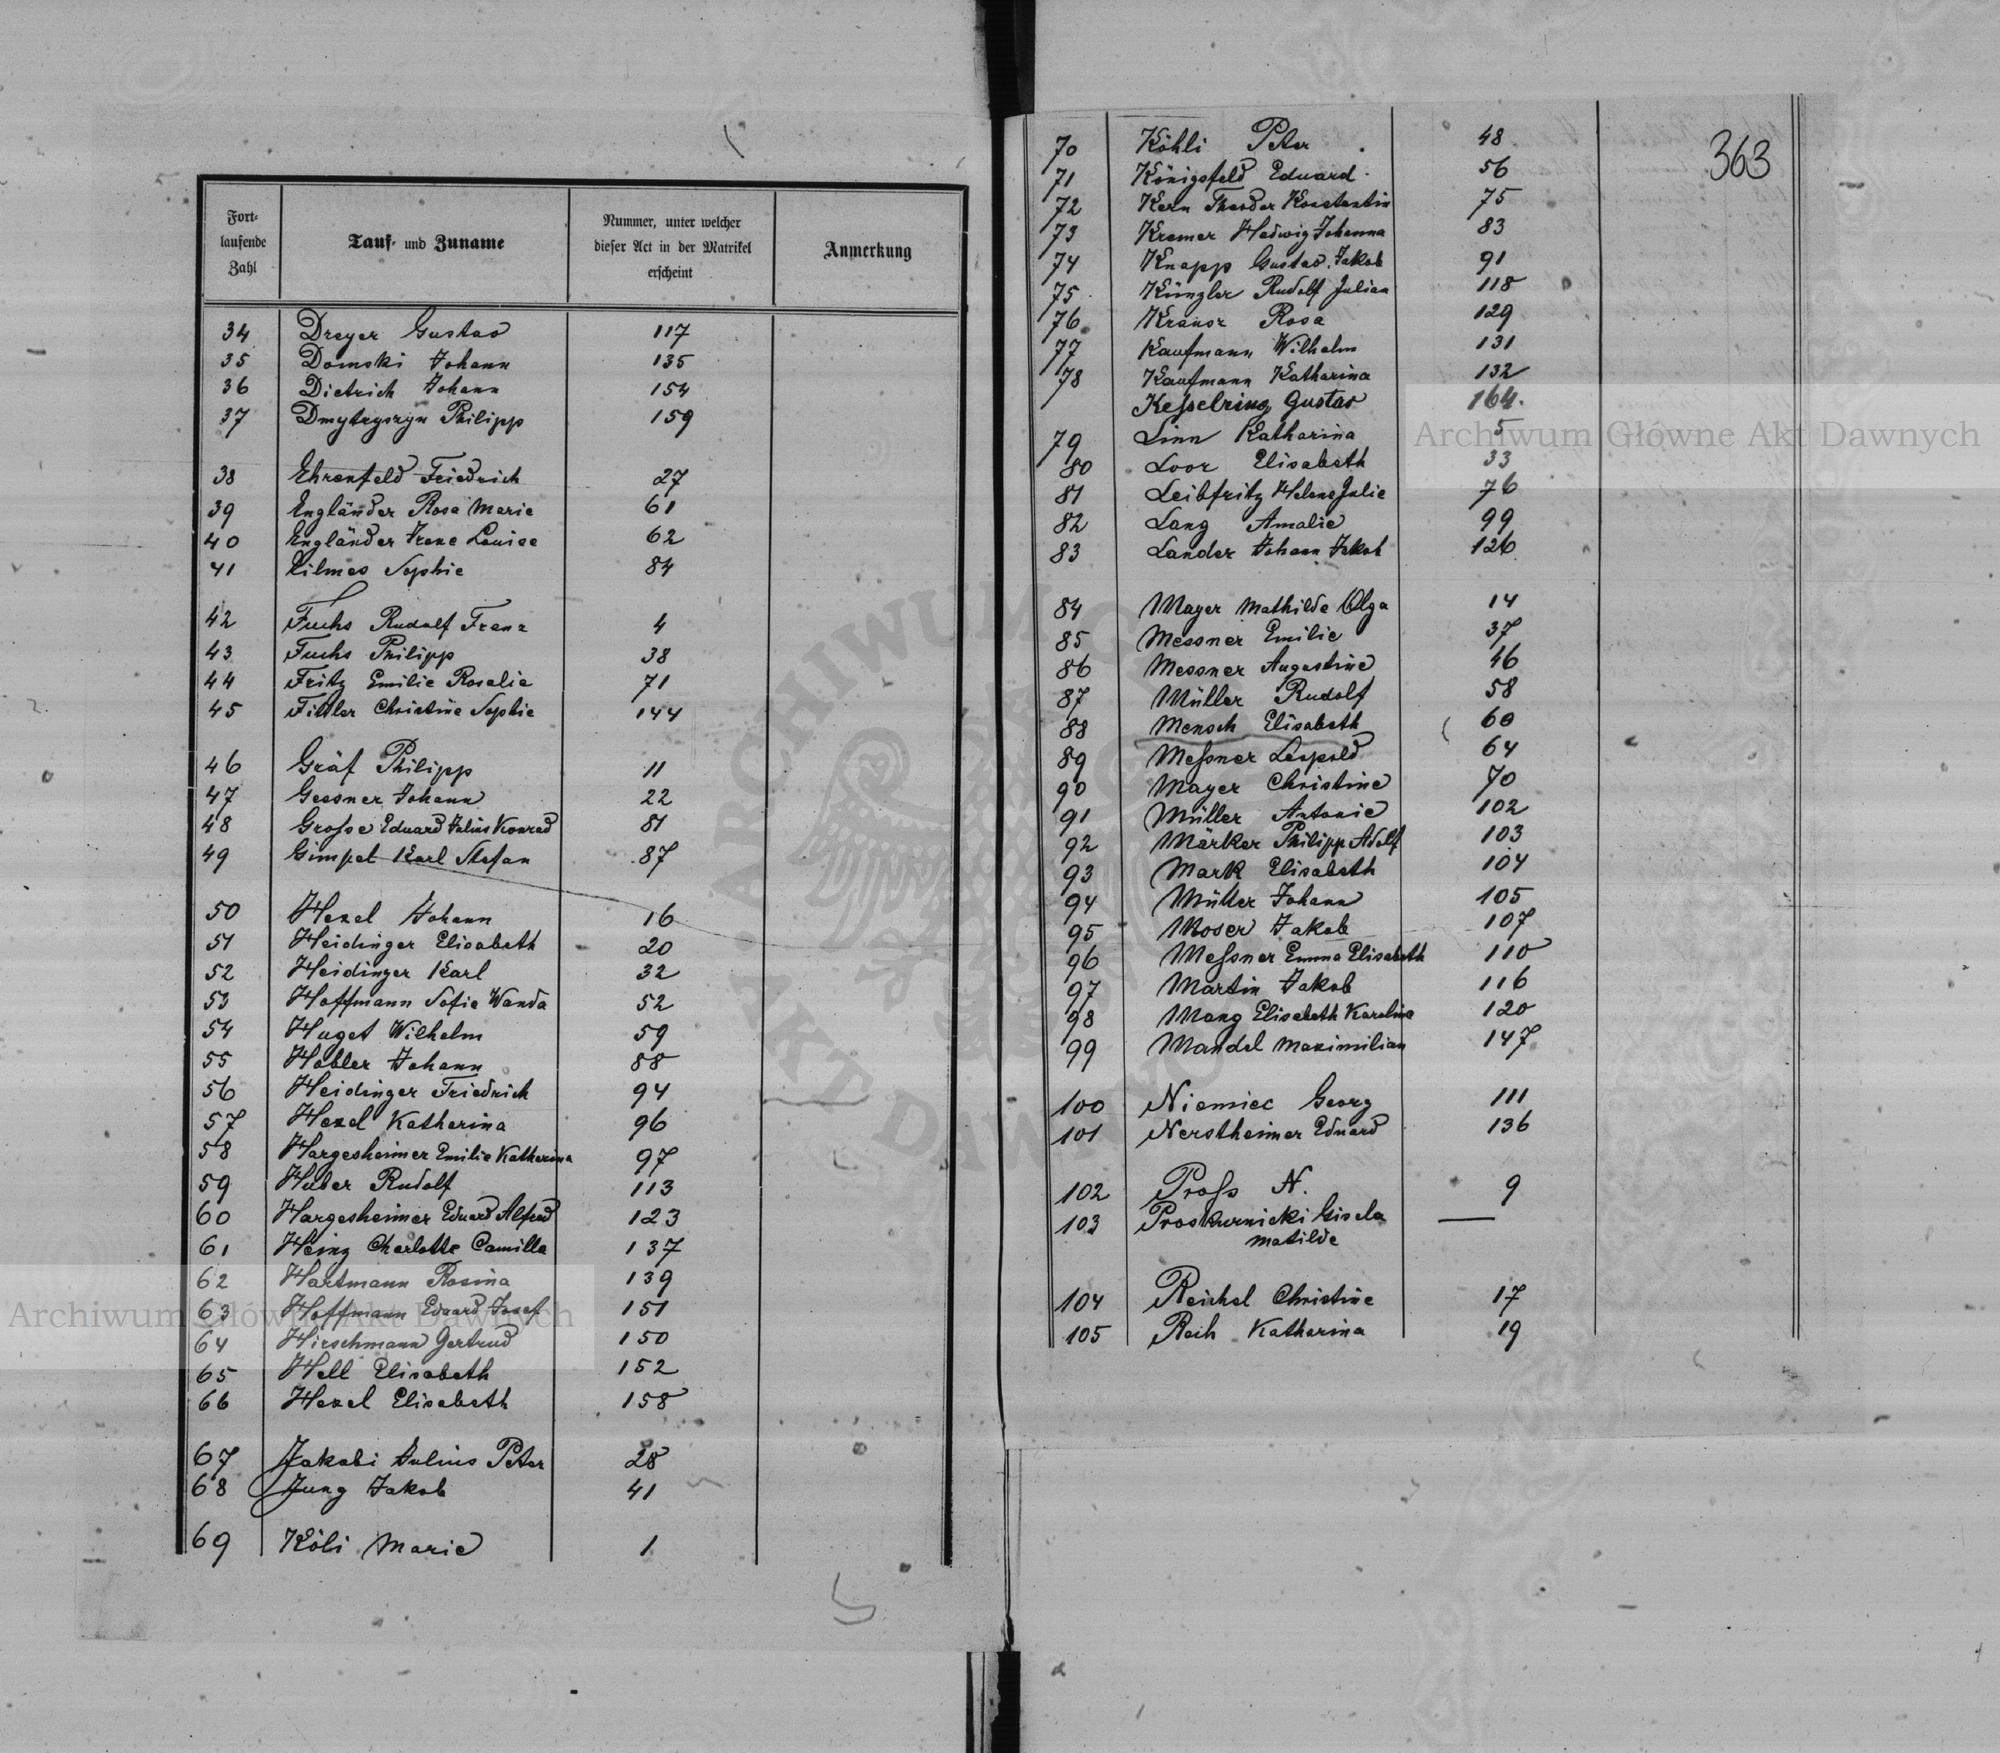 Fort-
laufende
Zahl
Tauf- und Zuname
Nummer, unter welcher
dieser Act in der Matrikel
erscheint
Anmerkung
34 Dreyer Gustav 117
35 Domski Johann 135
36 Dietrich Johann 154
37 Dmytryszyn Philipp 159
38 Ehrenfeld Friedrich 27
39 Engländer Rosa Marie 61
40 Engländer Irene Louise 62
41 Eilmes Sophie 84
42 Fuchs Rudolf Franz 4
43 Fuchs Philipp 38
44 Fritz Emilie Rosalie 71
45 Fittler Christine Sophie 144
46 Gräf Philipp 11
47 Gessner Johann 22
48 Grosse Eduard Julius Konrad 81
49 Gimpel Karl Stefan 87
50 Hexel Johann 16
51 Heidinger Elisabeth 20
52 Heidinger Karl 32
53 Hoffmann Sofie Wanda 52
54 Huget Wilhelm 59
55 Hobler Johann 88
56 Heidinger Friedrich 94
57 Hexel Katharina 96
58 Hargesheimer Emilie Katharina 97
59 Huber Rudolf 113
60 Hargesheimer Eduard Alfred 123
61 Heinz Charlotte Camilla 137
62 Hartmann Rosina 139
63 Hoffmann Eduard Josef 151
64 Hirschmann Gertrud 150
65 Hell Elisabeth 152
66 Hexel Elisabeth 158
67 Jakobi Julius Peter 28
68 Jung Jakob 41
69 Köli Marie 1
363
70 Köhli Peter 48
71 Königsfeld Eduard 56
72 Kern Theodor Konstantin 75
73 Kremer Hedwig Johanna 83
74 Knapp Gustav Jakob 91
75 Küngler Rudolf Julian 118
76 Rosa 129
77 Kaufmann Wilhelm 131
78 Kaufmann Katharina 132
Kesselring Gustav 164.
79 Linn Katharina 5
80 Loor Elisabeth 33
81 Leibfritz Helene Julie 76
82 Lang Amalie 99
83 Lander Johann Jakob 126
84 Mayer Mathilde Olga 14
85 Messner Emilie 37
86 Messner Augustine 46
87 Müller Rudolf 58
88 Mensch Elisabeth 60
89 Meßner Leopold 64
90 Mayer Christine 70
91 Müller Antonie 102
92 Märker Philipp Adolf 103
93 Mark Elisabeth 104
94 Müller Johann 105
95 Moser Jakob 107
96 Meßner Emma Elisabeth 110
97 Martin Jakob 116
98 Mang Elisabeth Karolina 120
99 Mandel Maximilian 147
100 Niemiec Georg 111
101 Nerstheimer Eduard 136
102 Proß N. 9
103 Proskurnicki Gisela —
Matilde
104 Reichel Christine 17
105 Reih Katharina 19
Archiwum Główne Akt Dawnych
Archiwum Główne Akt Dawnych
ARCHIWUM GŁÓWNE AKT DAWNYCH